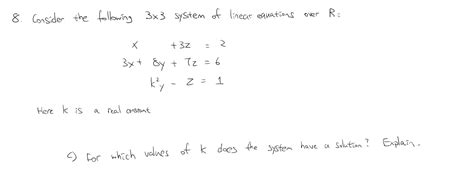 8. Consider the following 3x3 system of linear equations over R:
x +3z = 2
3x + 8y + 7z = 6
k²y - z = 1
Here k is a real constant
c) For which values of k does the system have a solution? Explain.